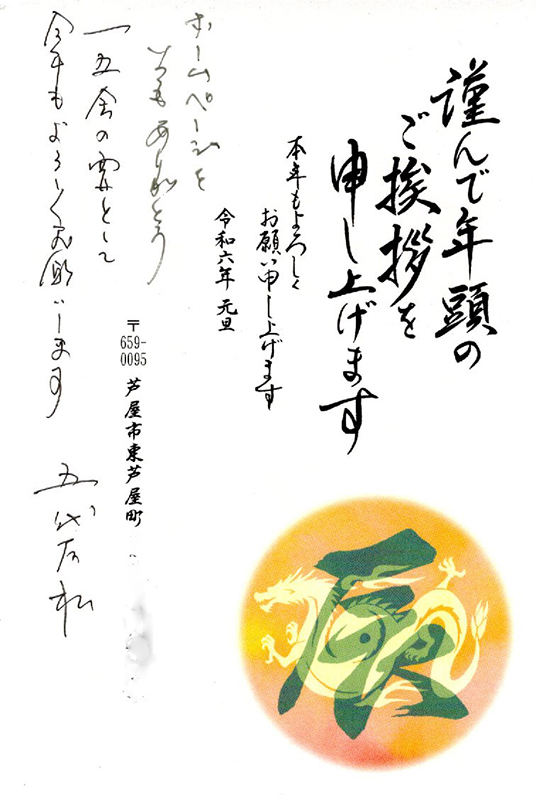 謹んで年頭の
ご挨拶を
申し上げます
本年もよろしく
お願い申し上げます
令和六年 元旦
ホームページを
いつもありがとう
一五会の宴として
今年もよろしくお願いします
〒
659-
0095
芦屋市東芦屋町
五代友和
辰